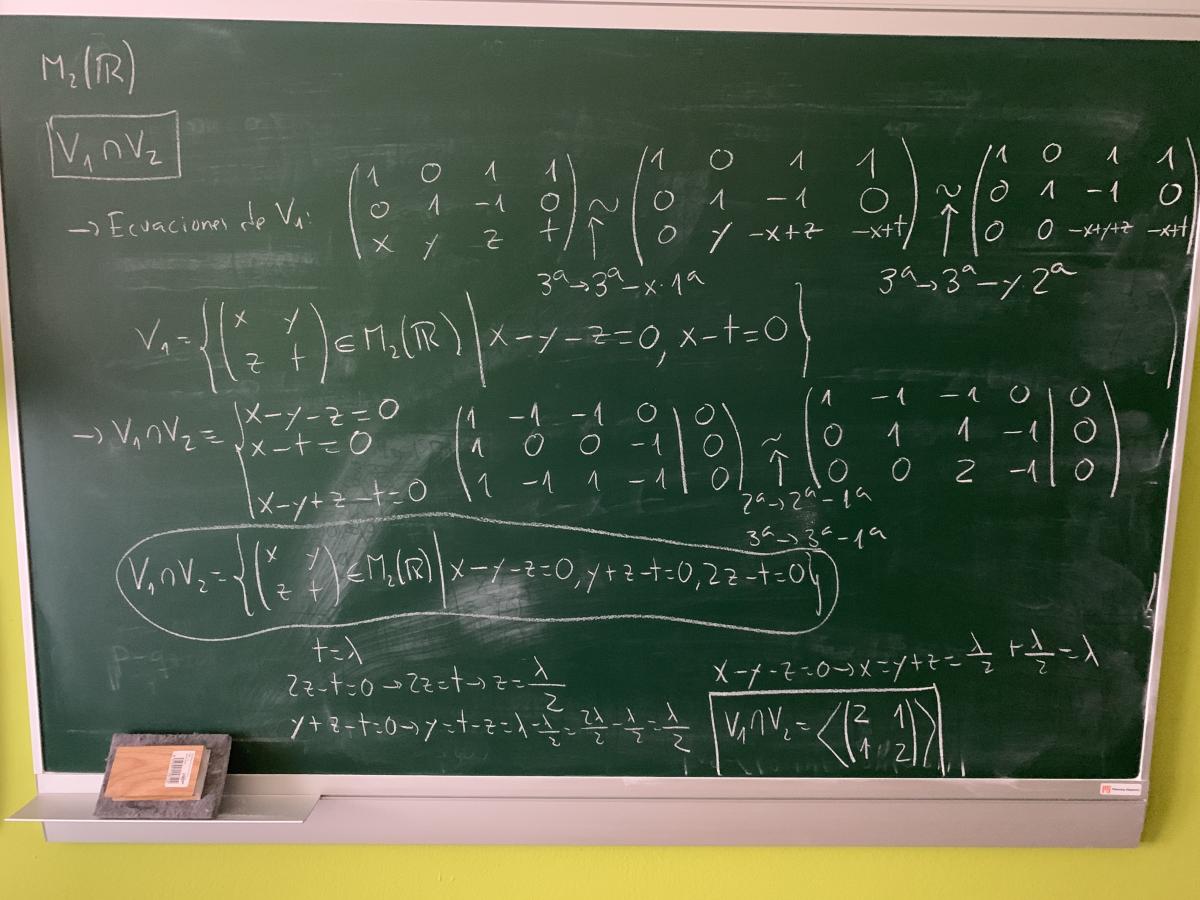 M₂(ℝ)
V₁∩V₂
→ Ecuaciones de V₁: (1 0 1 1 / 0 1 -1 0 / x y z t) ~ (1 0 1 1 / 0 1 -1 0 / 0 y -x+z -x+t) ~ (1 0 1 1 / 0 1 -1 0 / 0 0 -x+y+z -x+t)
↑ 3ª→3ª-x·1ª ↑ 3ª→3ª-y2ª
V₁={(x y / z t)∈M₂(ℝ)|x-y-z=0, x-t=0}
→ V₁∩V₂≡{x-y-z=0 / x-t=0 / x-y+z-t=0 (1 -1 -1 0 | 0 / 1 0 0 -1 | 0 / 1 -1 1 -1 | 0) ~ (1 -1 -1 0 | 0 / 0 1 1 -1 | 0 / 0 0 2 -1 | 0)
↑ 2ª→2ª-1ª
3ª→3ª-1ª
V₁∩V₂={(x y / z t)∈M₂(ℝ)|x-y-z=0, y+z-t=0, 2z-t=0}
t=λ
2z-t=0→2z=t→z=λ/2
y+z-t=0→y=t-z=λ-λ/2=2λ/2-λ/2=λ/2
x-y-z=0→x=y+z=λ/2+λ/2=λ
V₁∩V₂=⟨(2 1 / 1 2)⟩